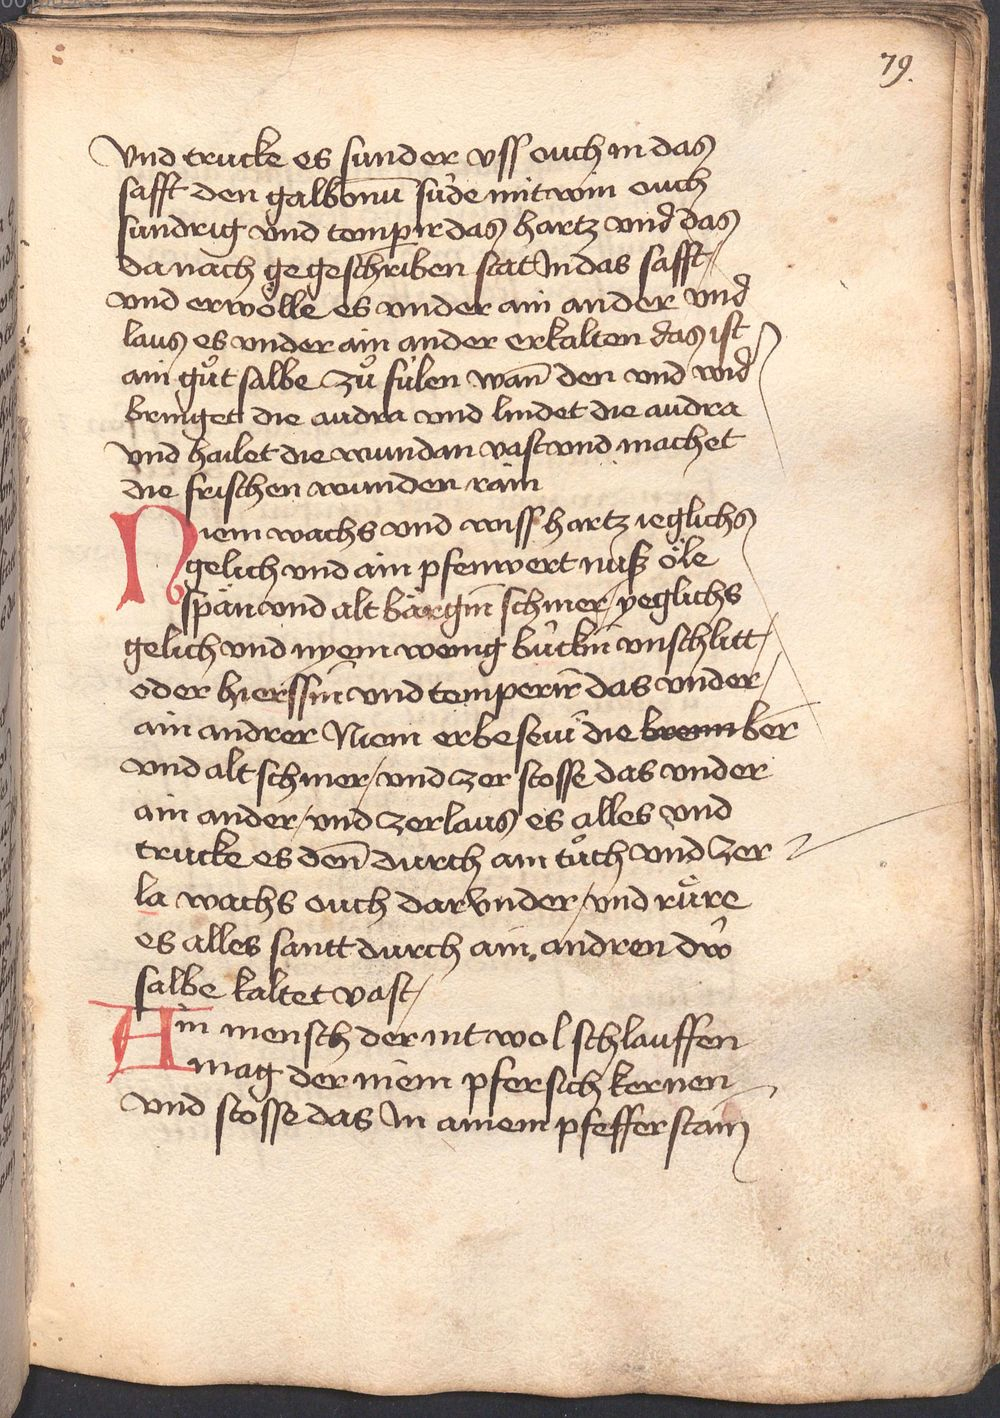 79.
vnd trucke es sunder vss ouch in das
safft den galbanū sùde mit win ouch
sundrig vnd temperir das hartz vnd das
da nach gegeschriben stat In das safft /
vnd erwölle es vnder ain ander vnd
laus es vnder ain ander erkalten das ist
ain gůt salbe zů fùlen wan̄ den vnd wid
bringet die audra vnd lindet die audra
vnd hailet die wundan vast vnd machet
die frischen wunden rain
Niem wachs vnd wiss hartz ieglichs
gelich vnd ain pfenwert nuss öle
spän vnd alt bärgin schmer / yeglichs
gelich vnd nyem wenig bùckin vnschlitt /
oder hierssin vnd temperir das vnder /
ain andrer Niem erbeseur die brenn ber
vnd alt schmer / vnd zerstosse das vnder
ain ander / vnd zerlaus es alles vnd
trucke es den̄ durch ain tůch vnd zer
la wachs ouch dar vnder / vnd rùre
es alles santt durch ain andren dw
salbe kaltet vast /
Ain mensch der nit wol schlauffen
mag der niem pfersich kernen
vnd stosse das In ainem pfefferstain